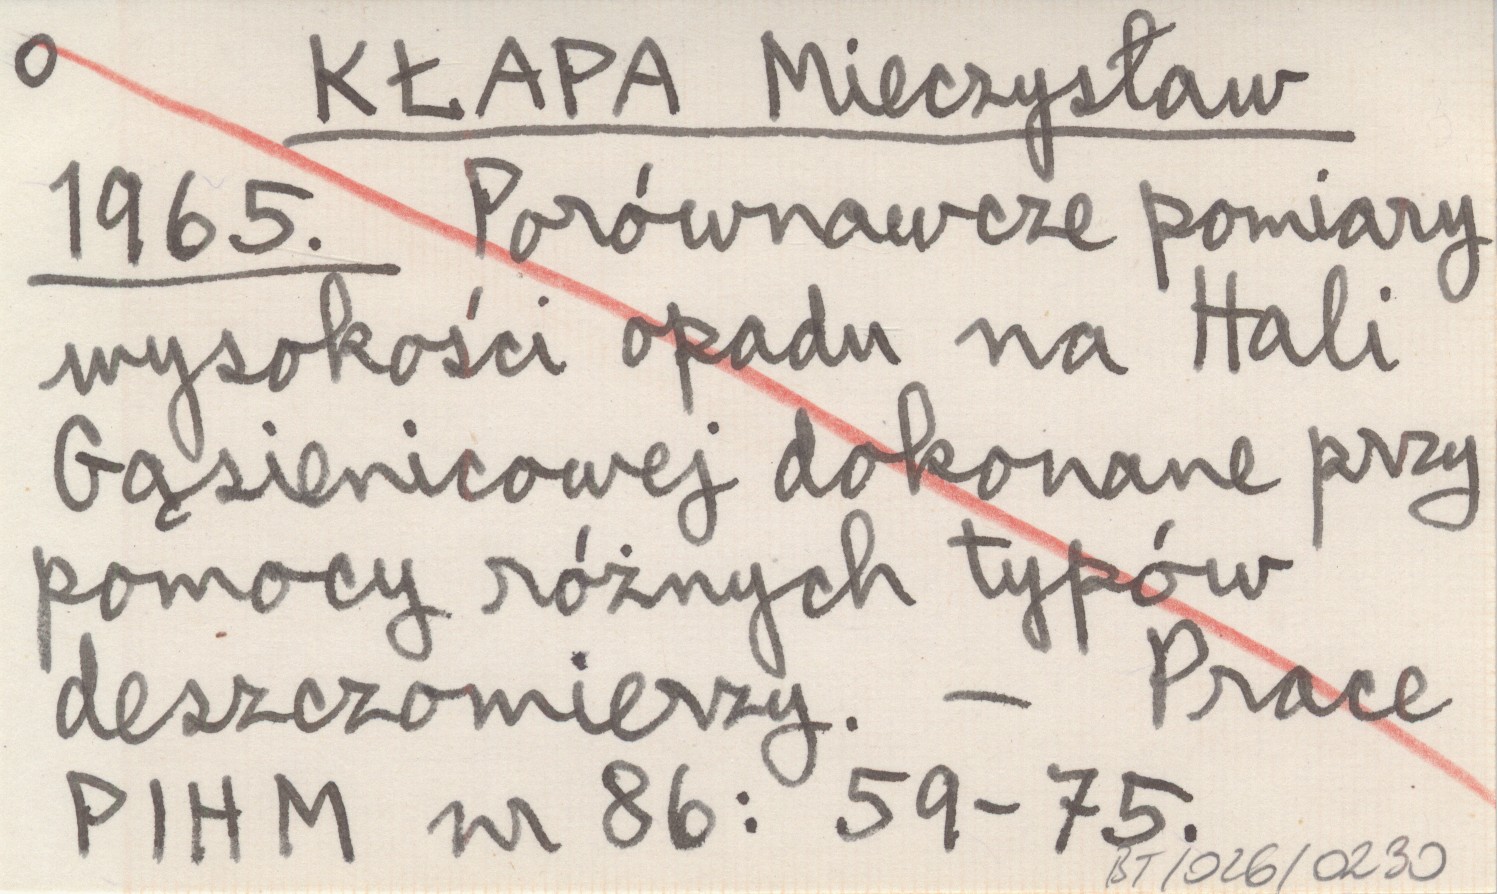 o KŁAPA Mieczysław
1965. Porównawcze pomiary
wysokości opadu na Hali
Gąsienicowej dokonane przy
pomocy różnych typów
deszczomierzy. — Prace
PIHM nr 86: 59-75.
BT/026/0230